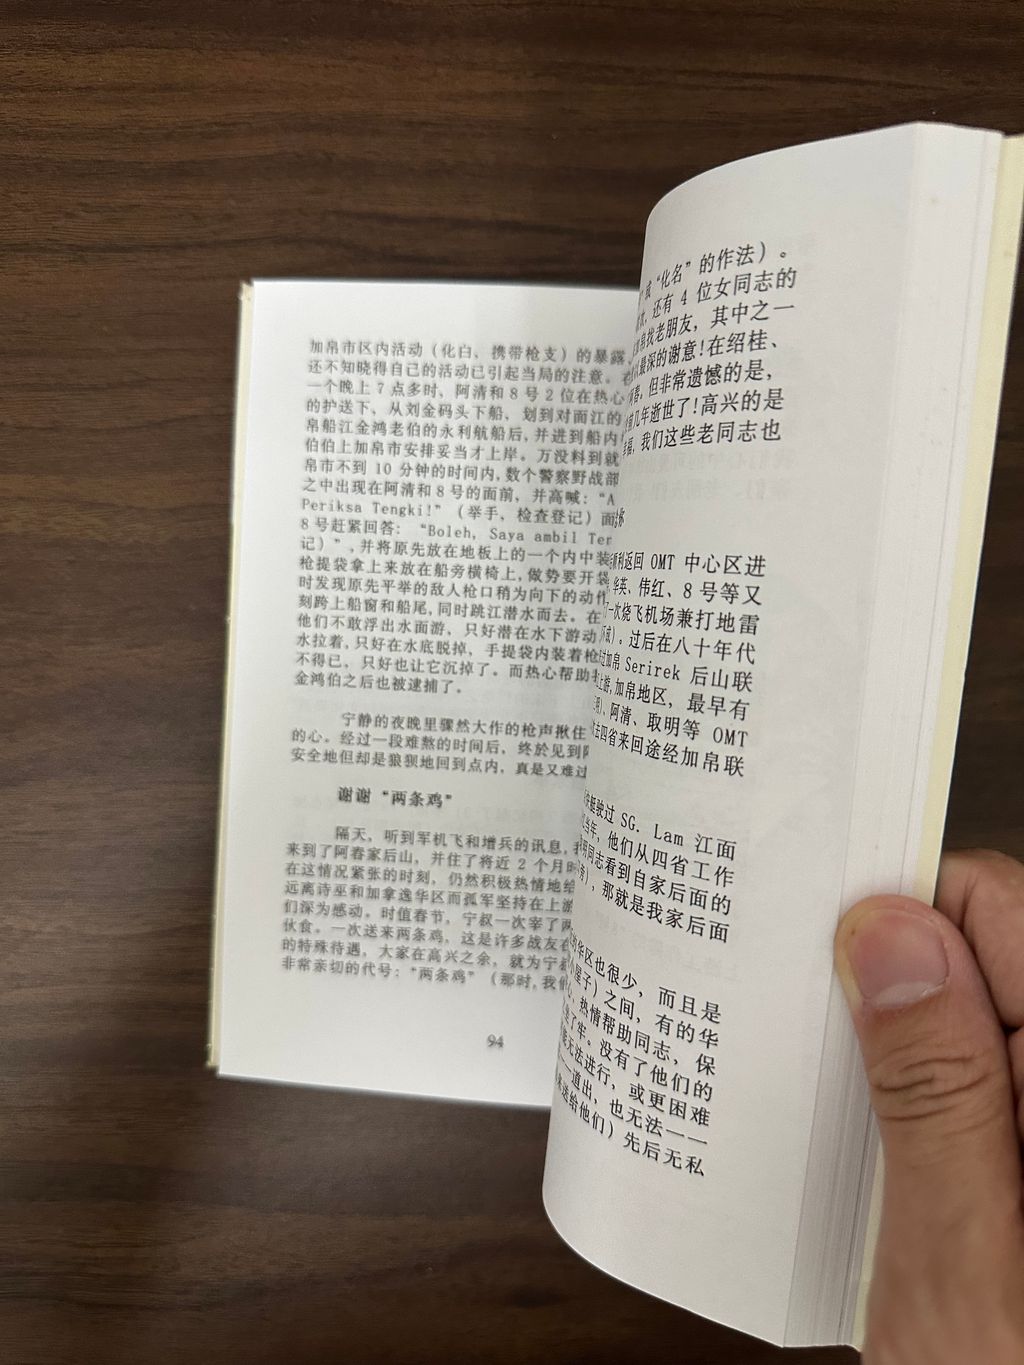 加帛市区内活动（化白、携带枪支）的暴露，
还不知晓得自己的活动已引起当局的注意。
一个晚上 7 点多时，阿清和 8 号 2 位在热心
的护送下，从刘金码头下船，划到对面江的
帛船江金鸿老伯的永利航船后，并进到船内
伯伯上加帛市安排妥当才上岸。万没料到就
帛市不到 10 分钟的时间内，数个警察野战部
之中出现在阿清和 8 号的面前，并高喊：“A
Periksa Tengki!”（举手、检查登记）面
8 号赶紧回答：“Boleh, Saya ambil Ter
记）”，并将原先放在地板上的一个内中装
枪提袋拿上来放在船旁横椅上，做势要开袋
时发现原先平举的敌人枪口稍为向下的动作
刻跨上船窗和船尾，同时跳江潜水而去。在
他们不敢浮出水面游，只好潜在水下游动
水拉着，只好在水底脱掉，手提袋内装着枪
不得已，只好也让它沉掉了。而热心帮助
金鸿伯之后也被逮捕了。
宁静的夜晚里骤然大作的枪声揪住
的心。经过一段难熬的时间后，终於见到
安全地但却是狼狈地回到点内，真是又难过
谢谢“两条鸡”
隔天，听到军机飞和增兵的讯息，
来到了阿春家后山，并住了将近 2 个月时
在这情况紧张的时刻，仍然积极热情地给
远离诗巫和加拿逸华区而孤军坚持在上游
们深为感动。时值春节，宁叔一次宰了两
伙食。一次送来两条鸡，这是许多战友在
的特殊待遇，大家在高兴之余，就为宁叔
非常亲切的代号：“两条鸡”（那时，我们
94
或“化名”的作法）。
还有 4 位女同志的
找老朋友，其中之一
最深的谢意！在绍桂、
但非常遗憾的是，
几年逝世了！高兴的是
福，我们这些老同志也
你
顺利返回 OMT 中心区进
华英、伟红、8 号等又
一次烧飞机场兼打地雷
不成）。过后在八十年代
过加帛 Serirek 后山联
上游，加帛地区，最早有
明）、阿清、取明等 OMT
去四省来回途经加帛联
快艇驶过 SG. Lam 江面
当年，他们从四省工作
同志看到自家后面的
，那就是我家后面
的华区也很少，而且是
小屋子）之间，有的华
心，热情帮助同志，保
坐了牢。没有了他们的
无法进行，或更困难
一一道出，也无法一一
送给他们）先后无私